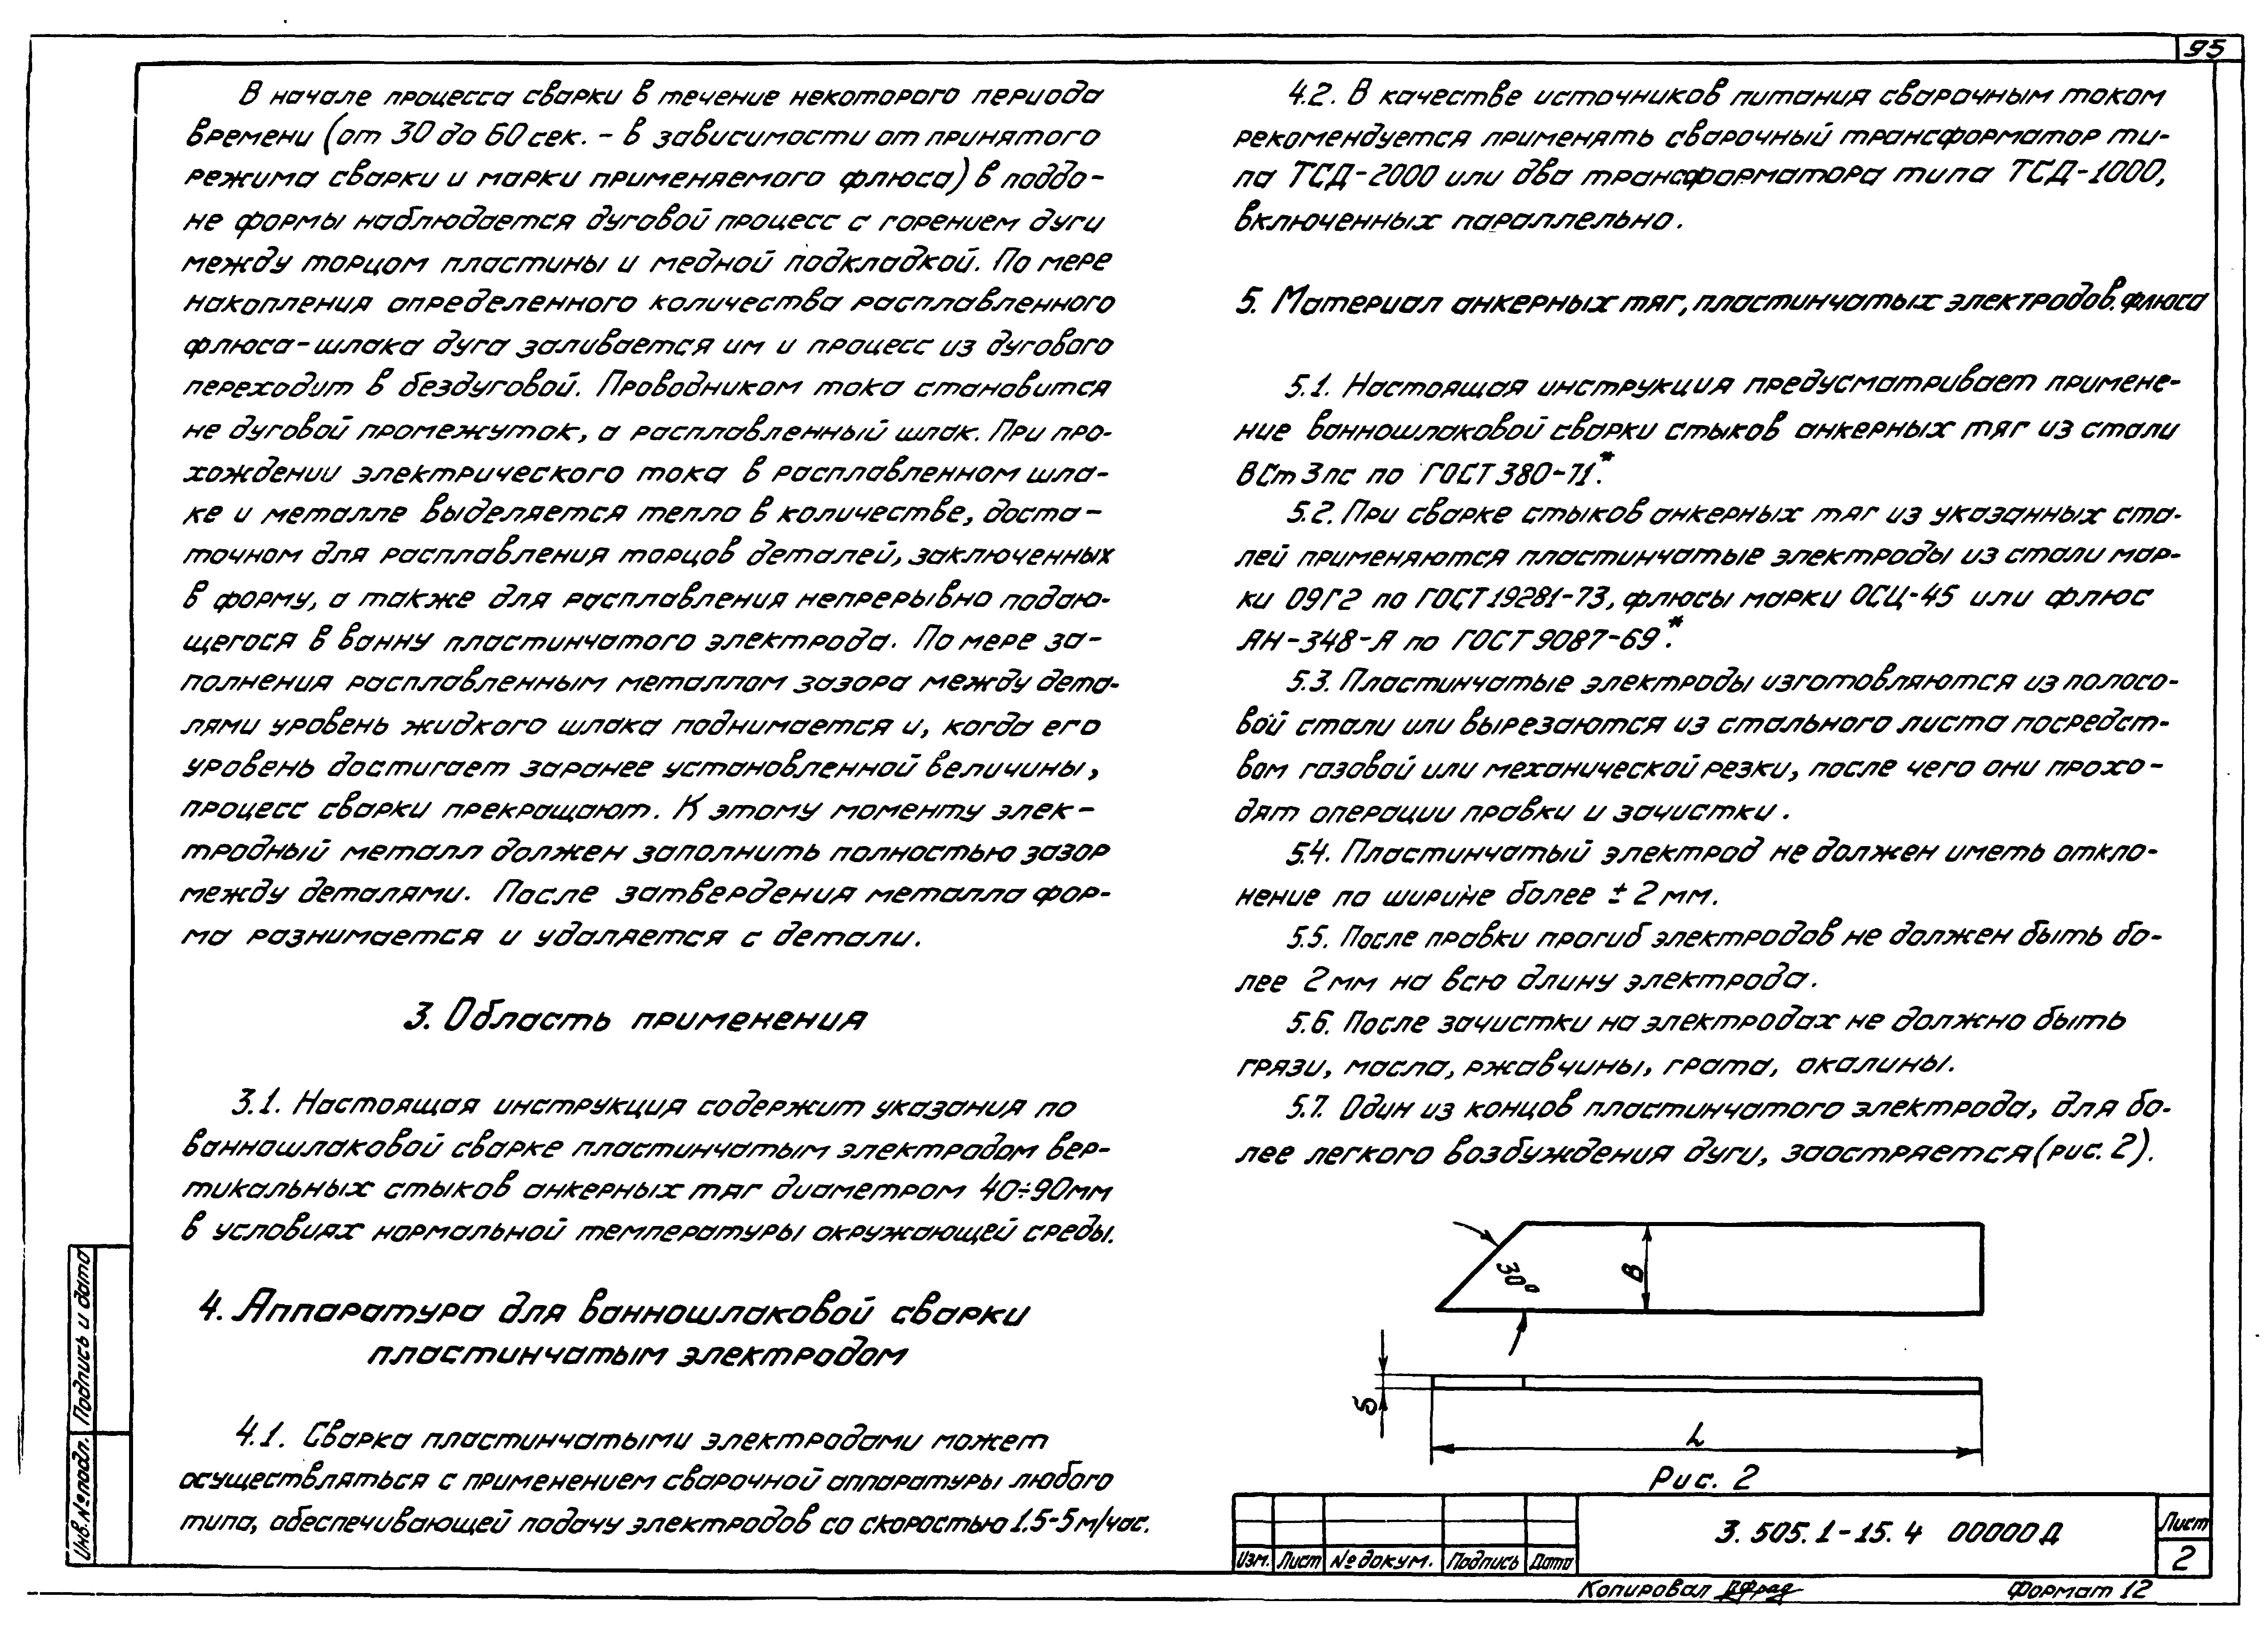 95
В начале процесса сварки в течение некоторого периода
времени (от 30 до 60 сек. - в зависимости от принятого
режима сварки и марки применяемого флюса) в поддо-
не формы наблюдается дуговой процесс с горением дуги
между торцом пластины и медной подкладкой. По мере
накопления определенного количества расплавленного
флюса-шлака дуга заливается им и процесс из дугового
переходит в бездуговой. Проводником тока становится
не дуговой промежуток, а расплавленный шлак. При про-
хождении электрического тока в расплавленном шла-
ке и металле выделяется тепло в количестве, доста-
точном для расплавления торцов деталей, заключенных
в форму, а также для расплавления непрерывно подаю-
щегося в ванну пластинчатого электрода. По мере за-
полнения расплавленным металлом зазора между дета-
лями уровень жидкого шлака поднимается и, когда его
уровень достигает заранее установленной величины,
процесс сварки прекращают. К этому моменту элек-
тродный металл должен заполнить полностью зазор
между деталями. После затвердения металла фор-
ма разнимается и удаляется с детали.
3. Область применения
3.1. Настоящая инструкция содержит указания по
ванношлаковой сварке пластинчатым электродом вер-
тикальных стыков анкерных тяг диаметром 40÷90мм
в условиях нормальной температуры окружающей среды.
4. Аппаратура для ванношлаковой сварки
пластинчатым электродом
4.1. Сварка пластинчатыми электродами может
осуществляться с применением сварочной аппаратуры любого
типа, обеспечивающей подачу электродов со скоростью 1.5-5 м/час.
4.2. В качестве источников питания сварочным током
рекомендуется применять сварочный трансформатор ти-
па ТСД-2000 или два трансформатора типа ТСД-1000,
включенных параллельно.
5. Материал анкерных тяг, пластинчатых электродов, флюса
5.1. Настоящая инструкция предусматривает примене-
ние ванношлаковой сварки стыков анкерных тяг из стали
ВСт3пс по ГОСТ 380-71*.
5.2. При сварке стыков анкерных тяг из указанных ста-
лей применяются пластинчатые электроды из стали мар-
ки 09Г2 по ГОСТ 19281-73, флюсы марки ОСЦ-45 или флюс
АН-348-А по ГОСТ 9087-69*.
5.3. Пластинчатые электроды изготовляются из полосо-
вой стали или вырезаются из стального листа посредст-
вом газовой или механической резки, после чего они прохо-
дят операции правки и зачистки.
5.4. Пластинчатый электрод не должен иметь откло-
нение по ширине более ± 2 мм.
5.5. После правки прогиб электродов не должен быть бо-
лее 2 мм на всю длину электрода.
5.6. После зачистки на электродах не должно быть
грязи, масла, ржавчины, грата, окалины.
5.7. Один из концов пластинчатого электрода, для бо-
лее легкого возбуждения дуги, заостряется (рис. 2).
30°
В
δ
L
Рис. 2
3. 505. 1-15. 4 00000 Д
Лист
2
Изм. Лист № докум. Подпись Дата
Копировал
Формат 12
Подпись и дата
Инв. № подл.